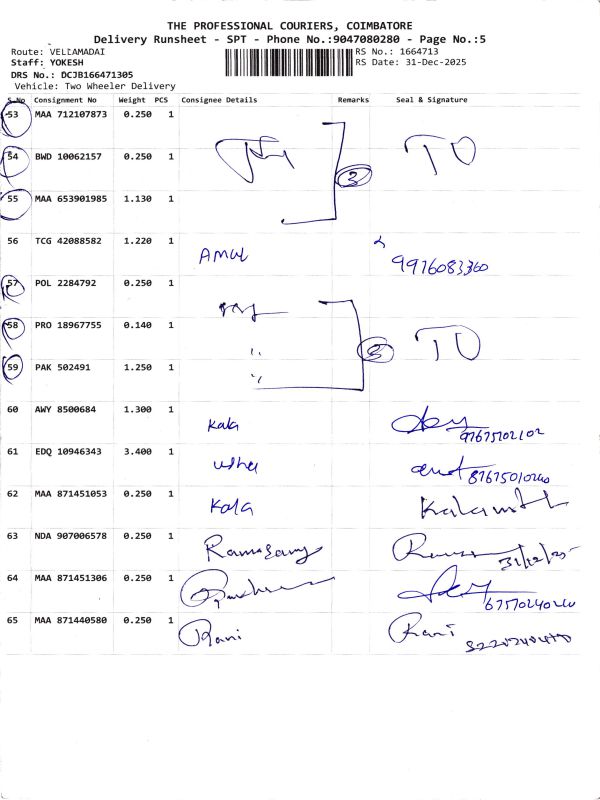 THE PROFESSIONAL COURIERS, COIMBATORE
Delivery Runsheet - SPT - Phone No.:9047080280 - Page No.:5
Route: VELLAMADAI
RS No.: 1664713
Staff: YOKESH
RS Date: 31-Dec-2025
DRS No.: DCJB166471305
Vehicle: Two Wheeler Delivery
S.No Consignment No Weight PCS Consignee Details Remarks Seal & Signature
53 MAA 712107873 0.250 1
54 BWD 10062157 0.250 1 3 TO
55 MAA 653901985 1.130 1
56 TCG 42088582 1.220 1 AMUL 9976083360
57 POL 2284792 0.250 1
58 PRO 18967755 0.140 1 3 TO
59 PAK 502491 1.250 1
60 AWY 8500684 1.300 1 Kala
61 EDQ 10946343 3.400 1 usha
62 MAA 871451053 0.250 1 Kala
63 NDA 907006578 0.250 1 Ramasamy 31/12/25
64 MAA 871451306 0.250 1
65 MAA 871440580 0.250 1 Rani Rani